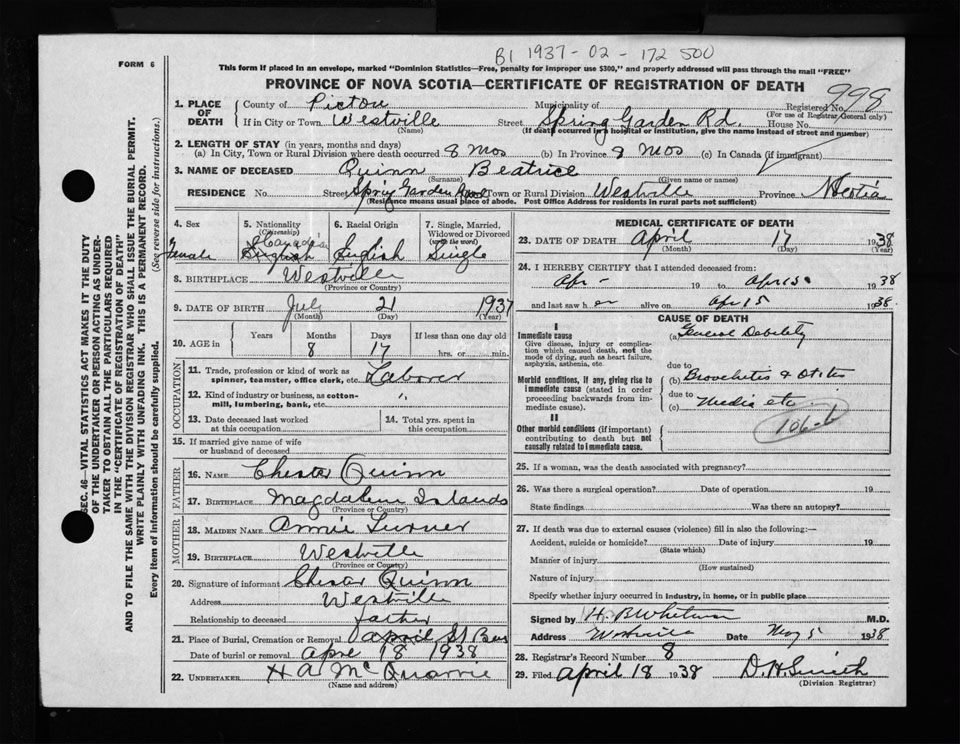 B1 1937-02-172500
FORM 6
This form if placed in an envelope, marked "Dominion Statistics—Free, penalty for improper use $300," and properly addressed will pass through the mail "FREE"
PROVINCE OF NOVA SCOTIA—CERTIFICATE OF REGISTRATION OF DEATH
998
1. PLACE OF DEATH County of Pictou Municipality of Registered No. (For use of Registrar General only)
If in City or Town Westville (Name) Street Spring Garden Rd. House No.
(If death occurred in a hospital or institution, give the name instead of street and number)
2. LENGTH OF STAY (in years, months and days)
(a) In City, Town or Rural Division where death occurred 8 Mos (b) In Province 8 Mos (c) In Canada (if immigrant)
3. NAME OF DECEASED Quinn (Surname) Beatrice (Given name or names)
RESIDENCE No. Street Spring Garden Road Town or Rural Division Westville Province N Scotia
(Residence means usual place of abode. Post Office Address for residents in rural parts not sufficient)
4. Sex Female
5. Nationality (Citizenship) Canadian English
6. Racial Origin English
7. Single, Married, Widowed or Divorced (write the word) Single
8. BIRTHPLACE Westville (Province or Country)
9. DATE OF BIRTH July (Month) 21 (Day) 1937 (Year)
10. AGE in Years Months 8 Days 17 If less than one day old hrs. or min.
OCCUPATION
11. Trade, profession or kind of work as spinner, teamster, office clerk, etc. Laborer
12. Kind of industry or business, as cotton-mill, lumbering, bank, etc. "
13. Date deceased last worked at this occupation 14. Total yrs. spent in this occupation
15. If married give name of wife or husband of deceased
FATHER
16. NAME Chester Quinn
17. BIRTHPLACE Magdalene Islands (Province or Country)
MOTHER
18. MAIDEN NAME Annie Turner
19. BIRTHPLACE Westville (Province or Country)
20. Signature of informant Chester Quinn
Address Westville
Relationship to deceased father
21. Place of Burial, Cremation or Removal
Date of burial or removal Apr 18 1938
22. UNDERTAKER H A McQuarrie (Name and address)
MEDICAL CERTIFICATE OF DEATH
23. DATE OF DEATH April (Month) 17 (Day) 1938 (Year)
24. I HEREBY CERTIFY that I attended deceased from:
Apr - 19 to Apr 15 1938
and last saw her alive on Apr 15 1938.
CAUSE OF DEATH
I
Immediate cause
Give disease, injury or complication which caused death, not the mode of dying, such as heart failure, asphyxia, asthenia, etc.
(a) General Debility
due to
Morbid conditions, if any, giving rise to immediate cause (stated in order proceeding backwards from immediate cause).
(b) Bronchitis & Otitis
due to
(c) Media etc
II
Other morbid conditions (if important) contributing to death but not causally related to immediate cause.
106-b
25. If a woman, was the death associated with pregnancy?
26. Was there a surgical operation? Date of operation 19
State findings Was there an autopsy?
27. If death was due to external causes (violence) fill in also the following:—
Accident, suicide or homicide? (State which) Date of injury 19
Manner of injury (How sustained)
Nature of injury
Specify whether injury occurred in industry, in home, or in public place
Signed by H. B. Whitman M.D.
Address Westville Date May 5 1938
28. Registrar's Record Number 8
29. Filed April 18 1938 D. H. Smith (Division Registrar)
SEC. 46—VITAL STATISTICS ACT MAKES IT THE DUTY
OF THE UNDERTAKER OR PERSON ACTING AS UNDER-
TAKER TO OBTAIN ALL THE PARTICULARS REQUIRED
IN THE "CERTIFICATE OF REGISTRATION OF DEATH"
AND TO FILE THE SAME WITH THE DIVISION REGISTRAR WHO SHALL ISSUE THE BURIAL PERMIT.
WRITE PLAINLY WITH UNFADING INK. THIS IS A PERMANENT RECORD.
Every item of information should be carefully supplied. (See reverse side for instructions.)